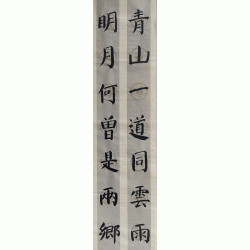 青山一道同雲雨
明月何曾是兩鄉